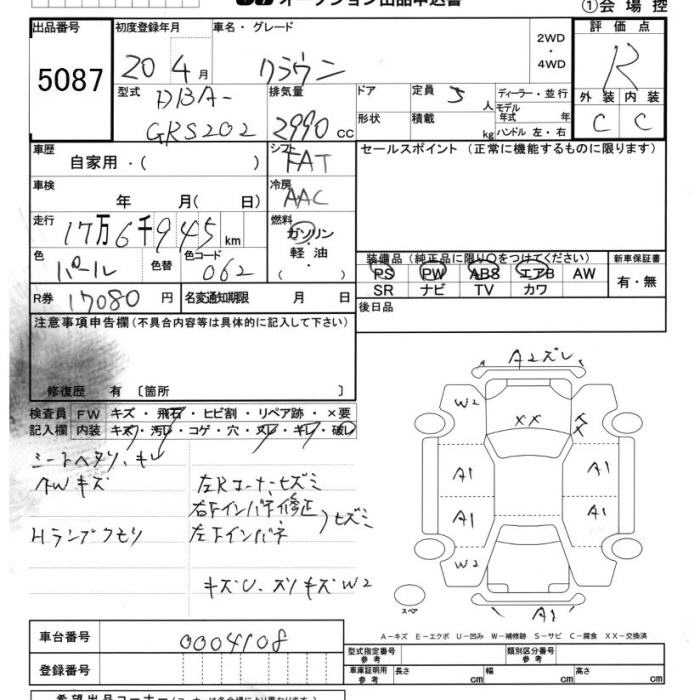 オークション出品申込書
①会場控
出品番号 初度登録年月 車名・グレード 2WD・4WD 評価点
5087 20年4月 クラウン R
型式 DBA-GRS202 排気量 2990cc ドア 定員 5人 ディーラー・並行 外装 内装
形状 積載 kg モデル年式 年 ハンドル 左・右 C C
車歴 自家用・( ) シフト FAT セールスポイント (正常に機能するものに限ります)
車検 年 月( 日) 冷房 AAC
走行 17万6千945km 燃料 ガソリン・軽油・( )
色 パール 色替 色コード 062 装備品 (純正品に限り○をつけてください) 新車保証書
PS PW ABS エアB AW 有・無
SR ナビ TV カワ
R券 17080円 名変通知期限 月 日 後日品
注意事項申告欄 (不具合内容等は具体的に記入して下さい)
修復歴 有 〔箇所 〕
検査員 FW キズ・飛石・ヒビ割・リペア跡・×要
記入欄 内装 キズ・汚レ・コゲ・穴・スレ・キレ・破レ
シートヘタリ、キレ
AWキズ
Hランプクモリ
左Rコーナーヒズミ
右Fインパネ修正
左Fインパネ
)ヒズミ
キズU、スリキズW2
A2ズレ
W2 XX X X
A1 A1
A1 A1
W2
スペア A1
A-キズ E-エクボ U-凹み W-補修跡 S-サビ C-腐食 XX-交換済
車台番号 0004108
型式指定番号 参考 類別区分番号 参考
登録番号
車庫証明用 参考 長さ cm 幅 cm 高さ cm
希望出品コーナー